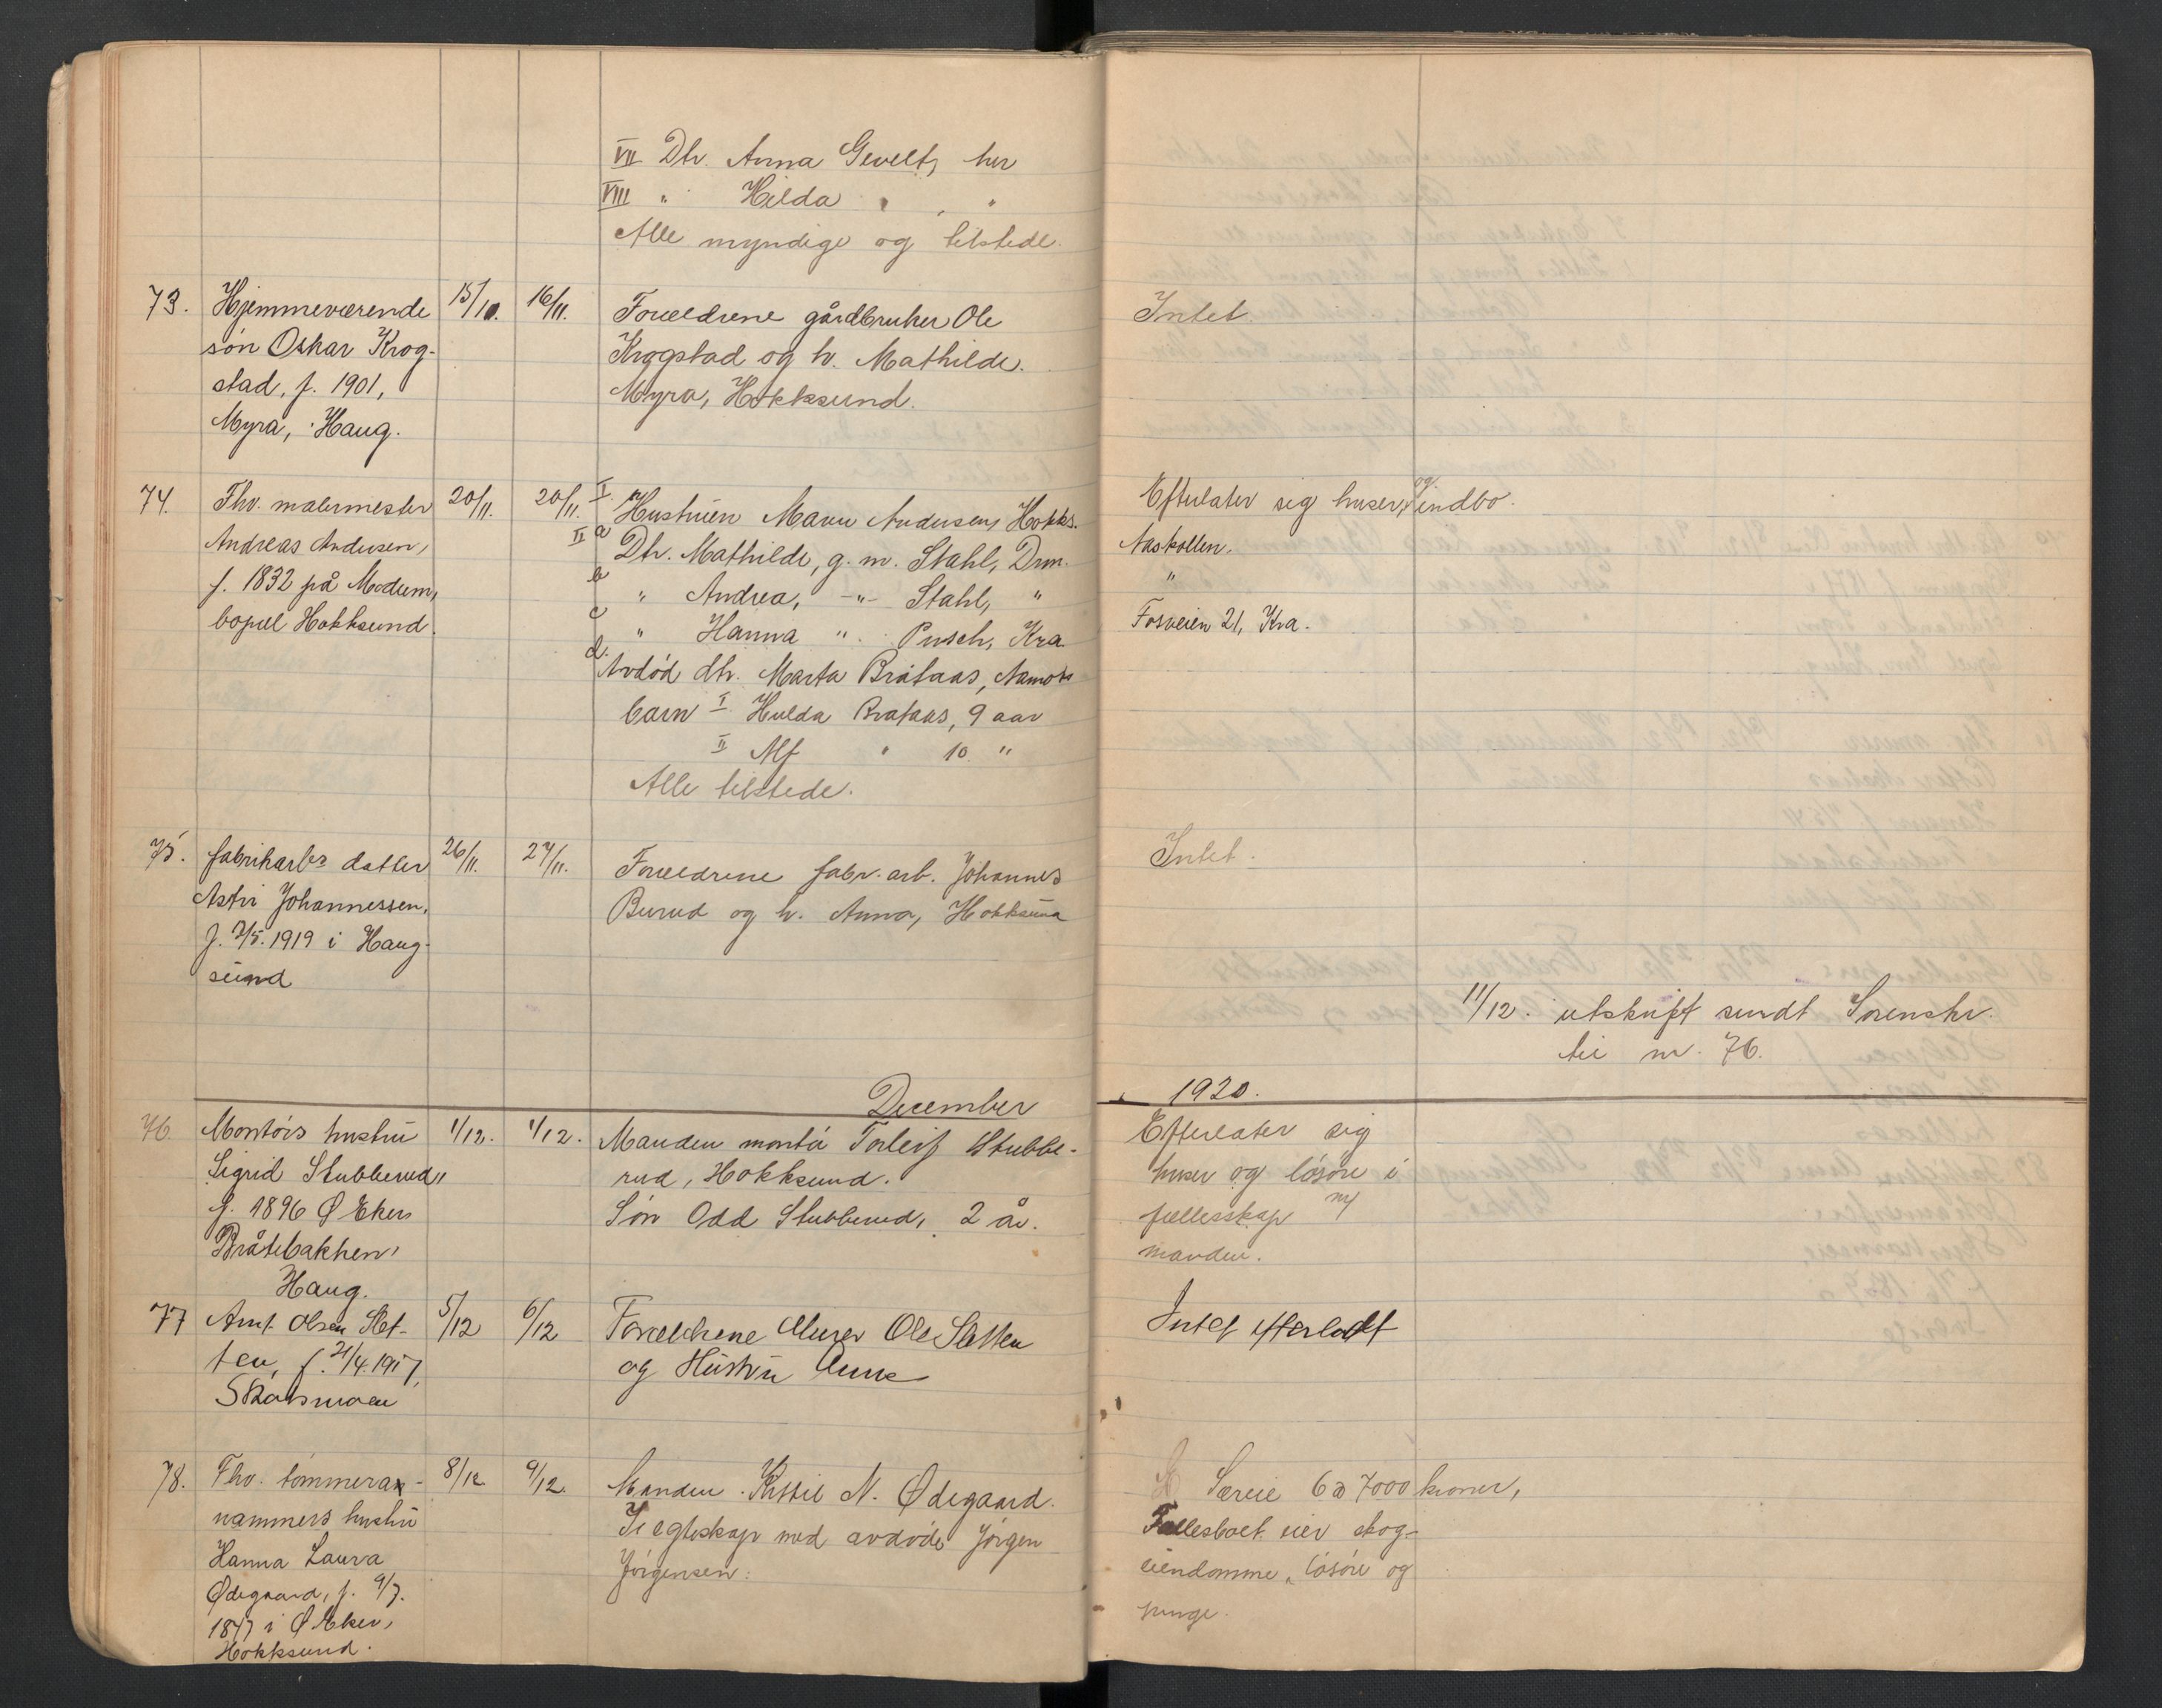 VII Dtr. Anna Gevelt, her
VIII " Hilda " , "
Alle myndige og tilstede.
73. Hjemmeværende 15/10. 16/11. Forældrene gårdbruker Ole Intet.
søn Oskar Krog- Krogstad og h. Mathilde.
stad, f. 1901, Myra, Hokksund.
Myra, Haug.
74. Fhv. malermester 20/11. 20/11. I. Hustruen Maren Andersen, Hokks. Efterlater sig huser, og indbo.
Andreas Andersen, II a Dtr. Mathilde, g. m. Stahl, Drm. Aaskollen.
f. 1832 på Modum, b " Andrea, -"- Stahl, " "
bopæl Hokksund. c " Hanna " Pusch, Kra. Fosveien 21, Kra.
d. Avdød dtr. Marta Bråtaas, Aamot
barn I Hulda Bråtaas, 9 aar
II Alf " 10 "
Alle tilstede.
75. fabrikarbs datter 26/11. 27/11. Forældrene fabr. arb. Johannes Intet.
Astri Johannessen, Burud og h. Anna, Hokksund
f. 7/5. 1919 i Haug-
sund
11/12. utskrift sendt Sorenskr.
til nr. 76.
December 1920.
76. Montørs hustru 1/12. 1/12. Manden montør Torleif Stubbe- Efterlater sig
Sigrid Stubberud, rud, Hokksund. huser og løsøre i
f. 1896 Ø Eker Søn Odd Stubberud, 2 år. fællesskap m/
Bråtebakken, manden.
Haug.
77 Arnt Olsen Slet- 5/12 6/12 Forældrene Murer Ole Sletten Intet efterladt
ten, f. 21/4. 1917, og Hustru Anne
Skotsmoen
78. Fhv. tømmeran- 8/12 9/12. Manden Kittil N. Ødegaard. Særeie 6 à 7000 kroner,
nammers hustru I egteskap med avdøde Jørgen Fællesboet eier skog-
Hanna Laura Jørgensen: eiendomme, løsøre og
Ødegaard, f. 9/7. penge.
1847 i Ø Eker,
Hokksund.